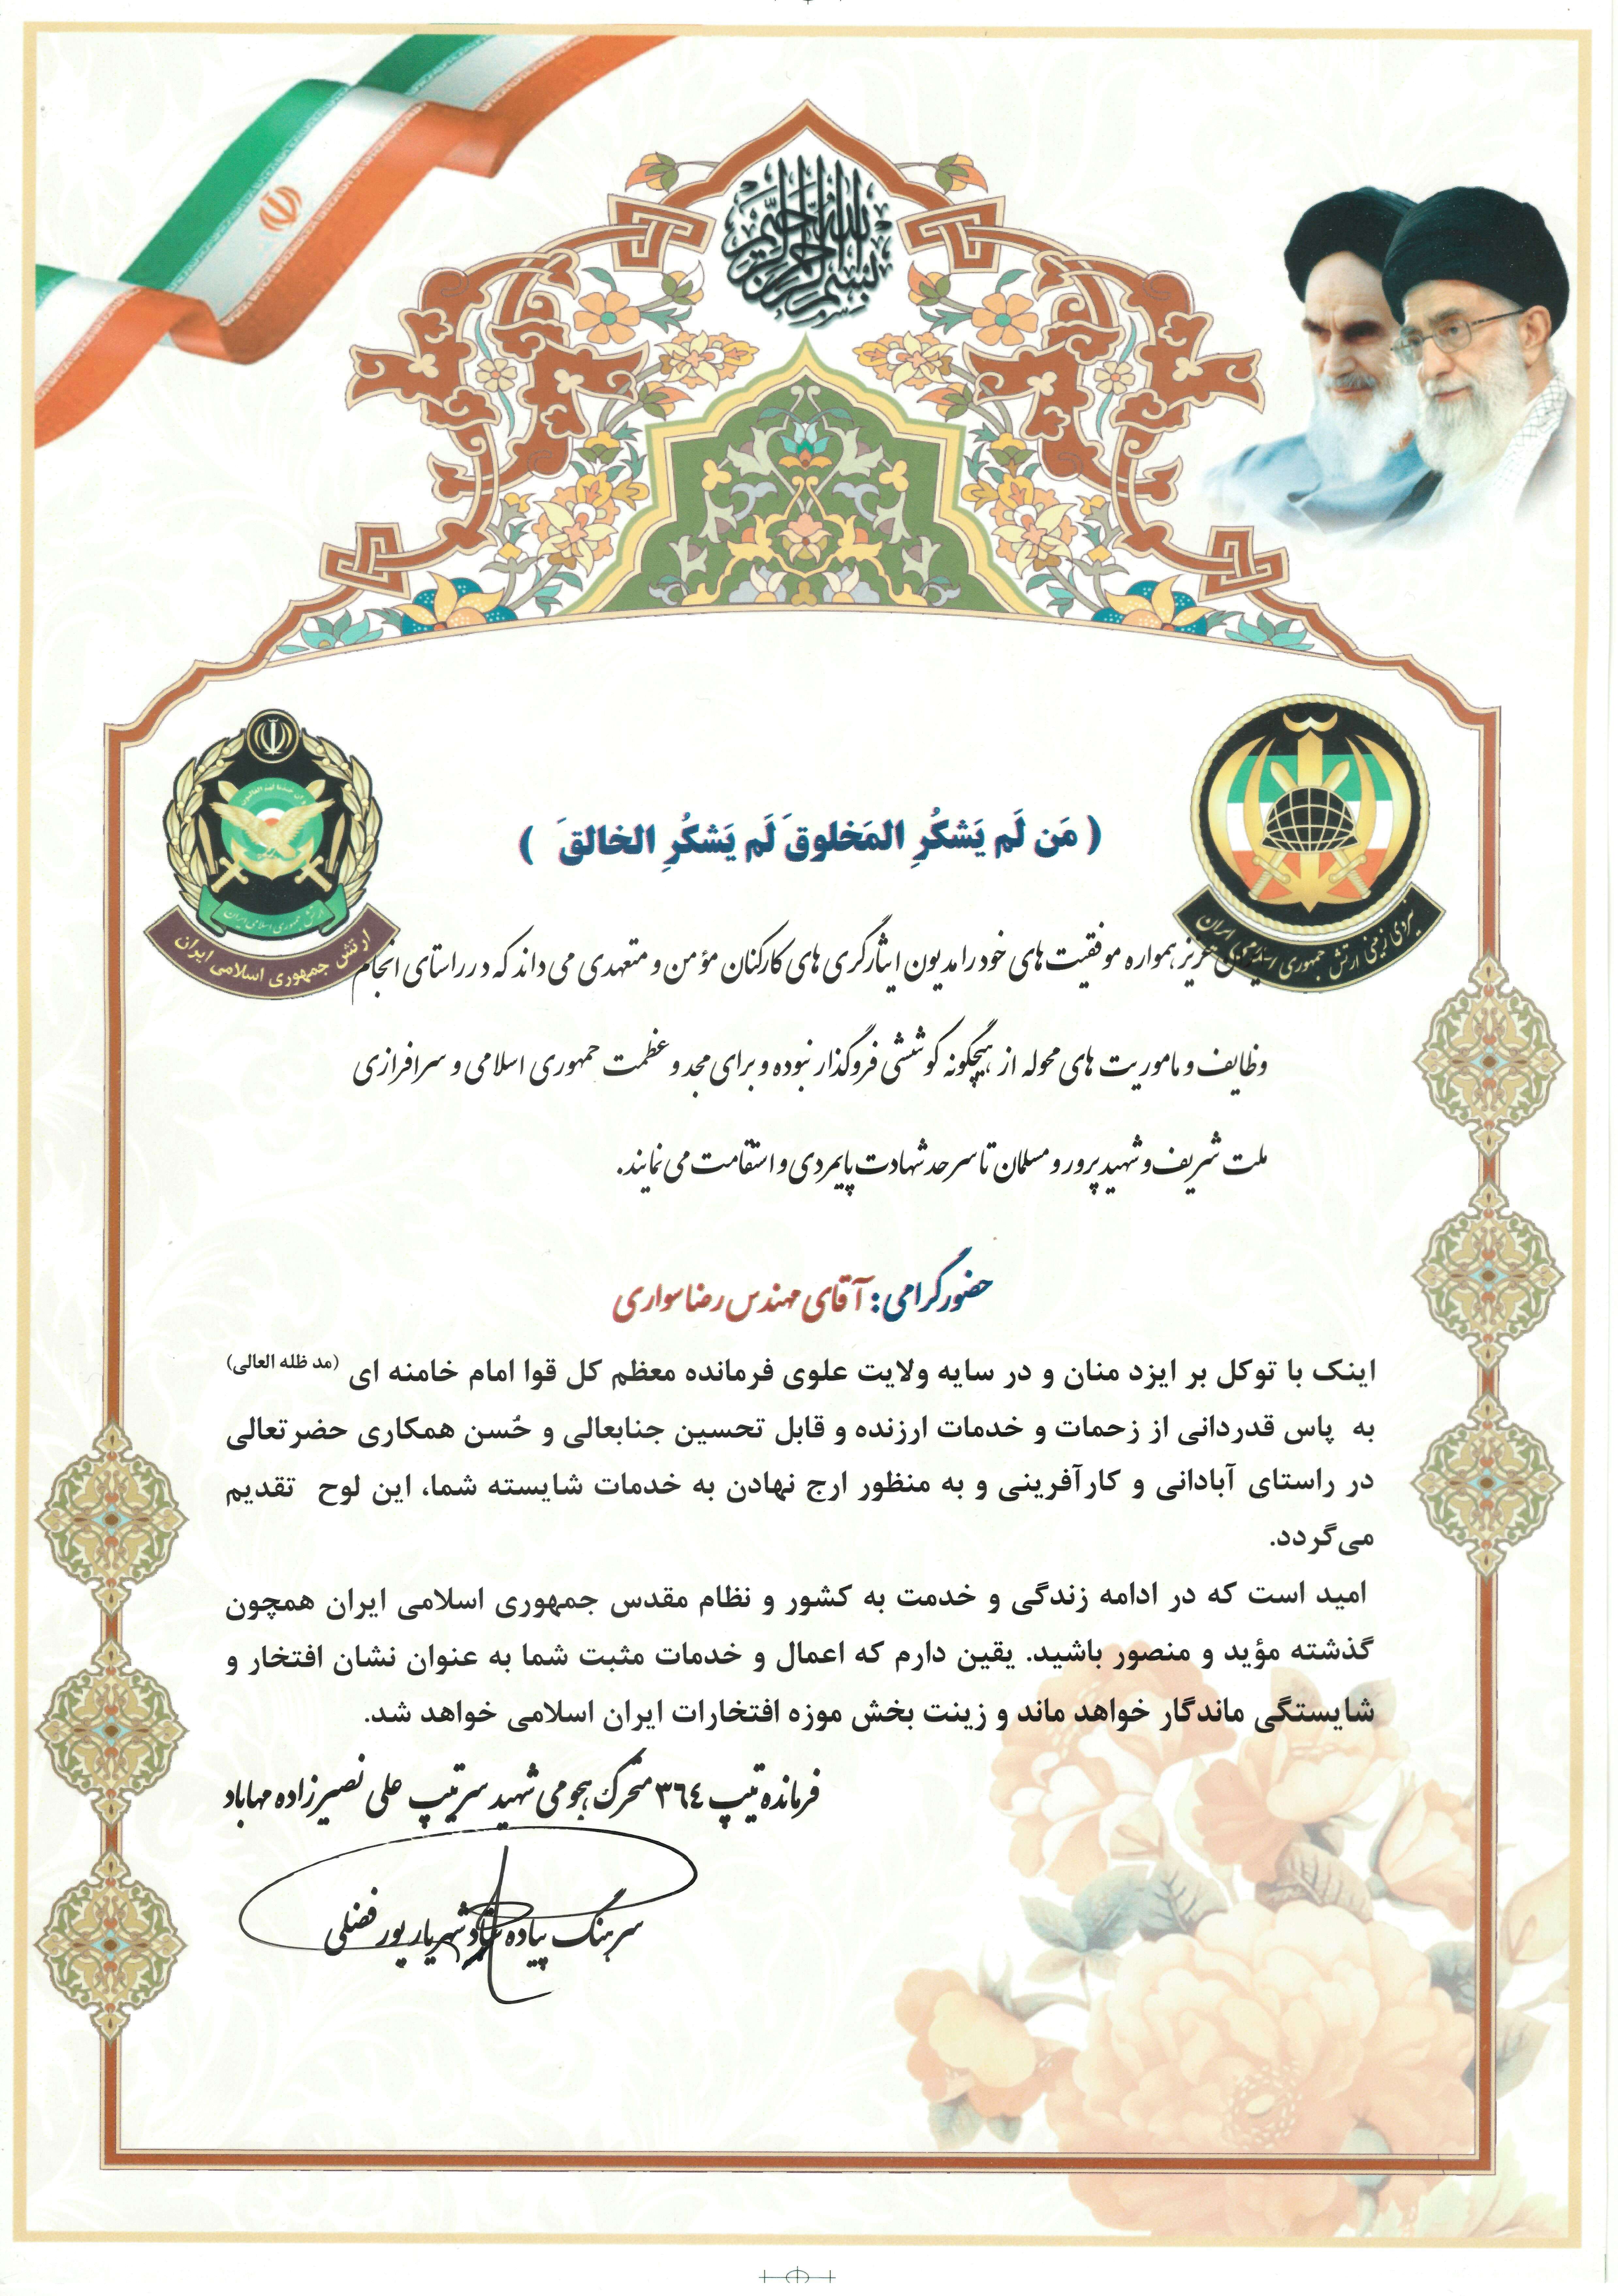 بسم الله الرحمن الرحیم
ارتش جمهوری اسلامی ایران
ارتش جمهوری اسلامی ایران
نیروی زمینی ارتش جمهوری اسلامی ایران
( مَن لَم یَشکُرِ المَخلوقَ لَم یَشکُرِ الخالقَ )
عزیز همواره موفقیت های خود را مدیون ایثارگری های کارکنان مؤمن و متعهدی می داند که در راستای انجام
وظایف و ماموریت های محوله از هیچگونه کوششی فروگذار نبوده و برای مجد و عظمت جمهوری اسلامی و سرافرازی
ملت شریف و شهید پرور و مسلمان تا سرحد شهادت پایمردی و استقامت می نمایند.
حضور گرامی: آقای مهندس رضا سواری
اینک با توکل بر ایزد منان و در سایه ولایت علوی فرمانده معظم کل قوا امام خامنه ای (مد ظله العالی)
به پاس قدردانی از زحمات و خدمات ارزنده و قابل تحسین جنابعالی و حُسن همکاری حضرتعالی
در راستای آبادانی و کارآفرینی و به منظور ارج نهادن به خدمات شایسته شما، این لوح تقدیم
می‌گردد.
امید است که در ادامه زندگی و خدمت به کشور و نظام مقدس جمهوری اسلامی ایران همچون
گذشته مؤید و منصور باشید. یقین دارم که اعمال و خدمات مثبت شما به عنوان نشان افتخار و
شایستگی ماندگار خواهد ماند و زینت بخش موزه افتخارات ایران اسلامی خواهد شد.
فرمانده تیپ ۳٦٤ متحرک هجومی شهید سرتیپ علی نصیرزاده مهاباد
سرهنگ پیاده ستاد شهریار پورفضلی